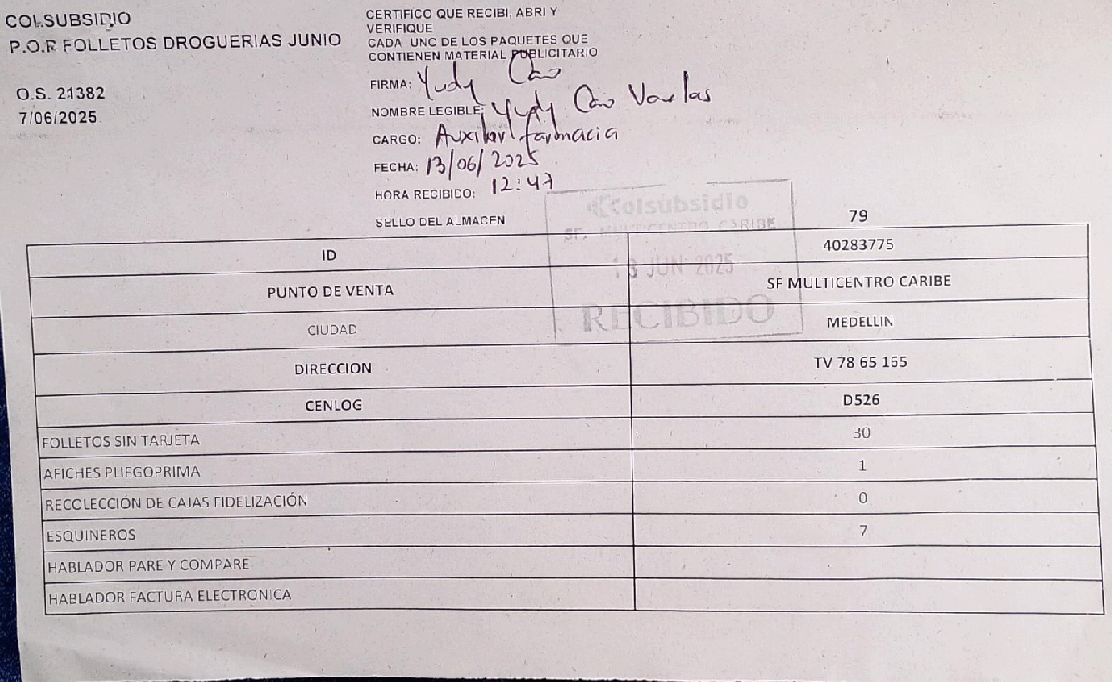 COLSUBSIDIO
P.O.P. FOLLETOS DROGUERIAS JUNIO
O.S. 21382
7/06/2025
CERTIFICO QUE RECIBI, ABRI Y
VERIFIQUE
CADA UNO DE LOS PAQUETES QUE
CONTIENEN MATERIAL PUBLICITARIO
FIRMA: Yudy Cano
NOMBRE LEGIBLE: Yudy Cano
CARGO: Auxiliar farmacia
FECHA: 13/06/2025
HORA RECIBICO: 12:47
SELLO DEL ALMACEN
Colsubsidio
SF. MULTICENTRO CARIBE
13 JUN 2025
RECIBIDO
79
ID 40283775
PUNTO DE VENTA SF MULTICENTRO CARIBE
CIUDAD MEDELLIN
DIRECCION TV 78 65 155
CENLOG D526
FOLLETOS SIN TARJETA 30
AFICHES PLIEGO PRIMA 1
RECOLECCIÓN DE CAJAS FIDELIZACIÓN 0
ESQUINEROS 7
HABLADOR PARE Y COMPARE
HABLADOR FACTURA ELECTRONICA